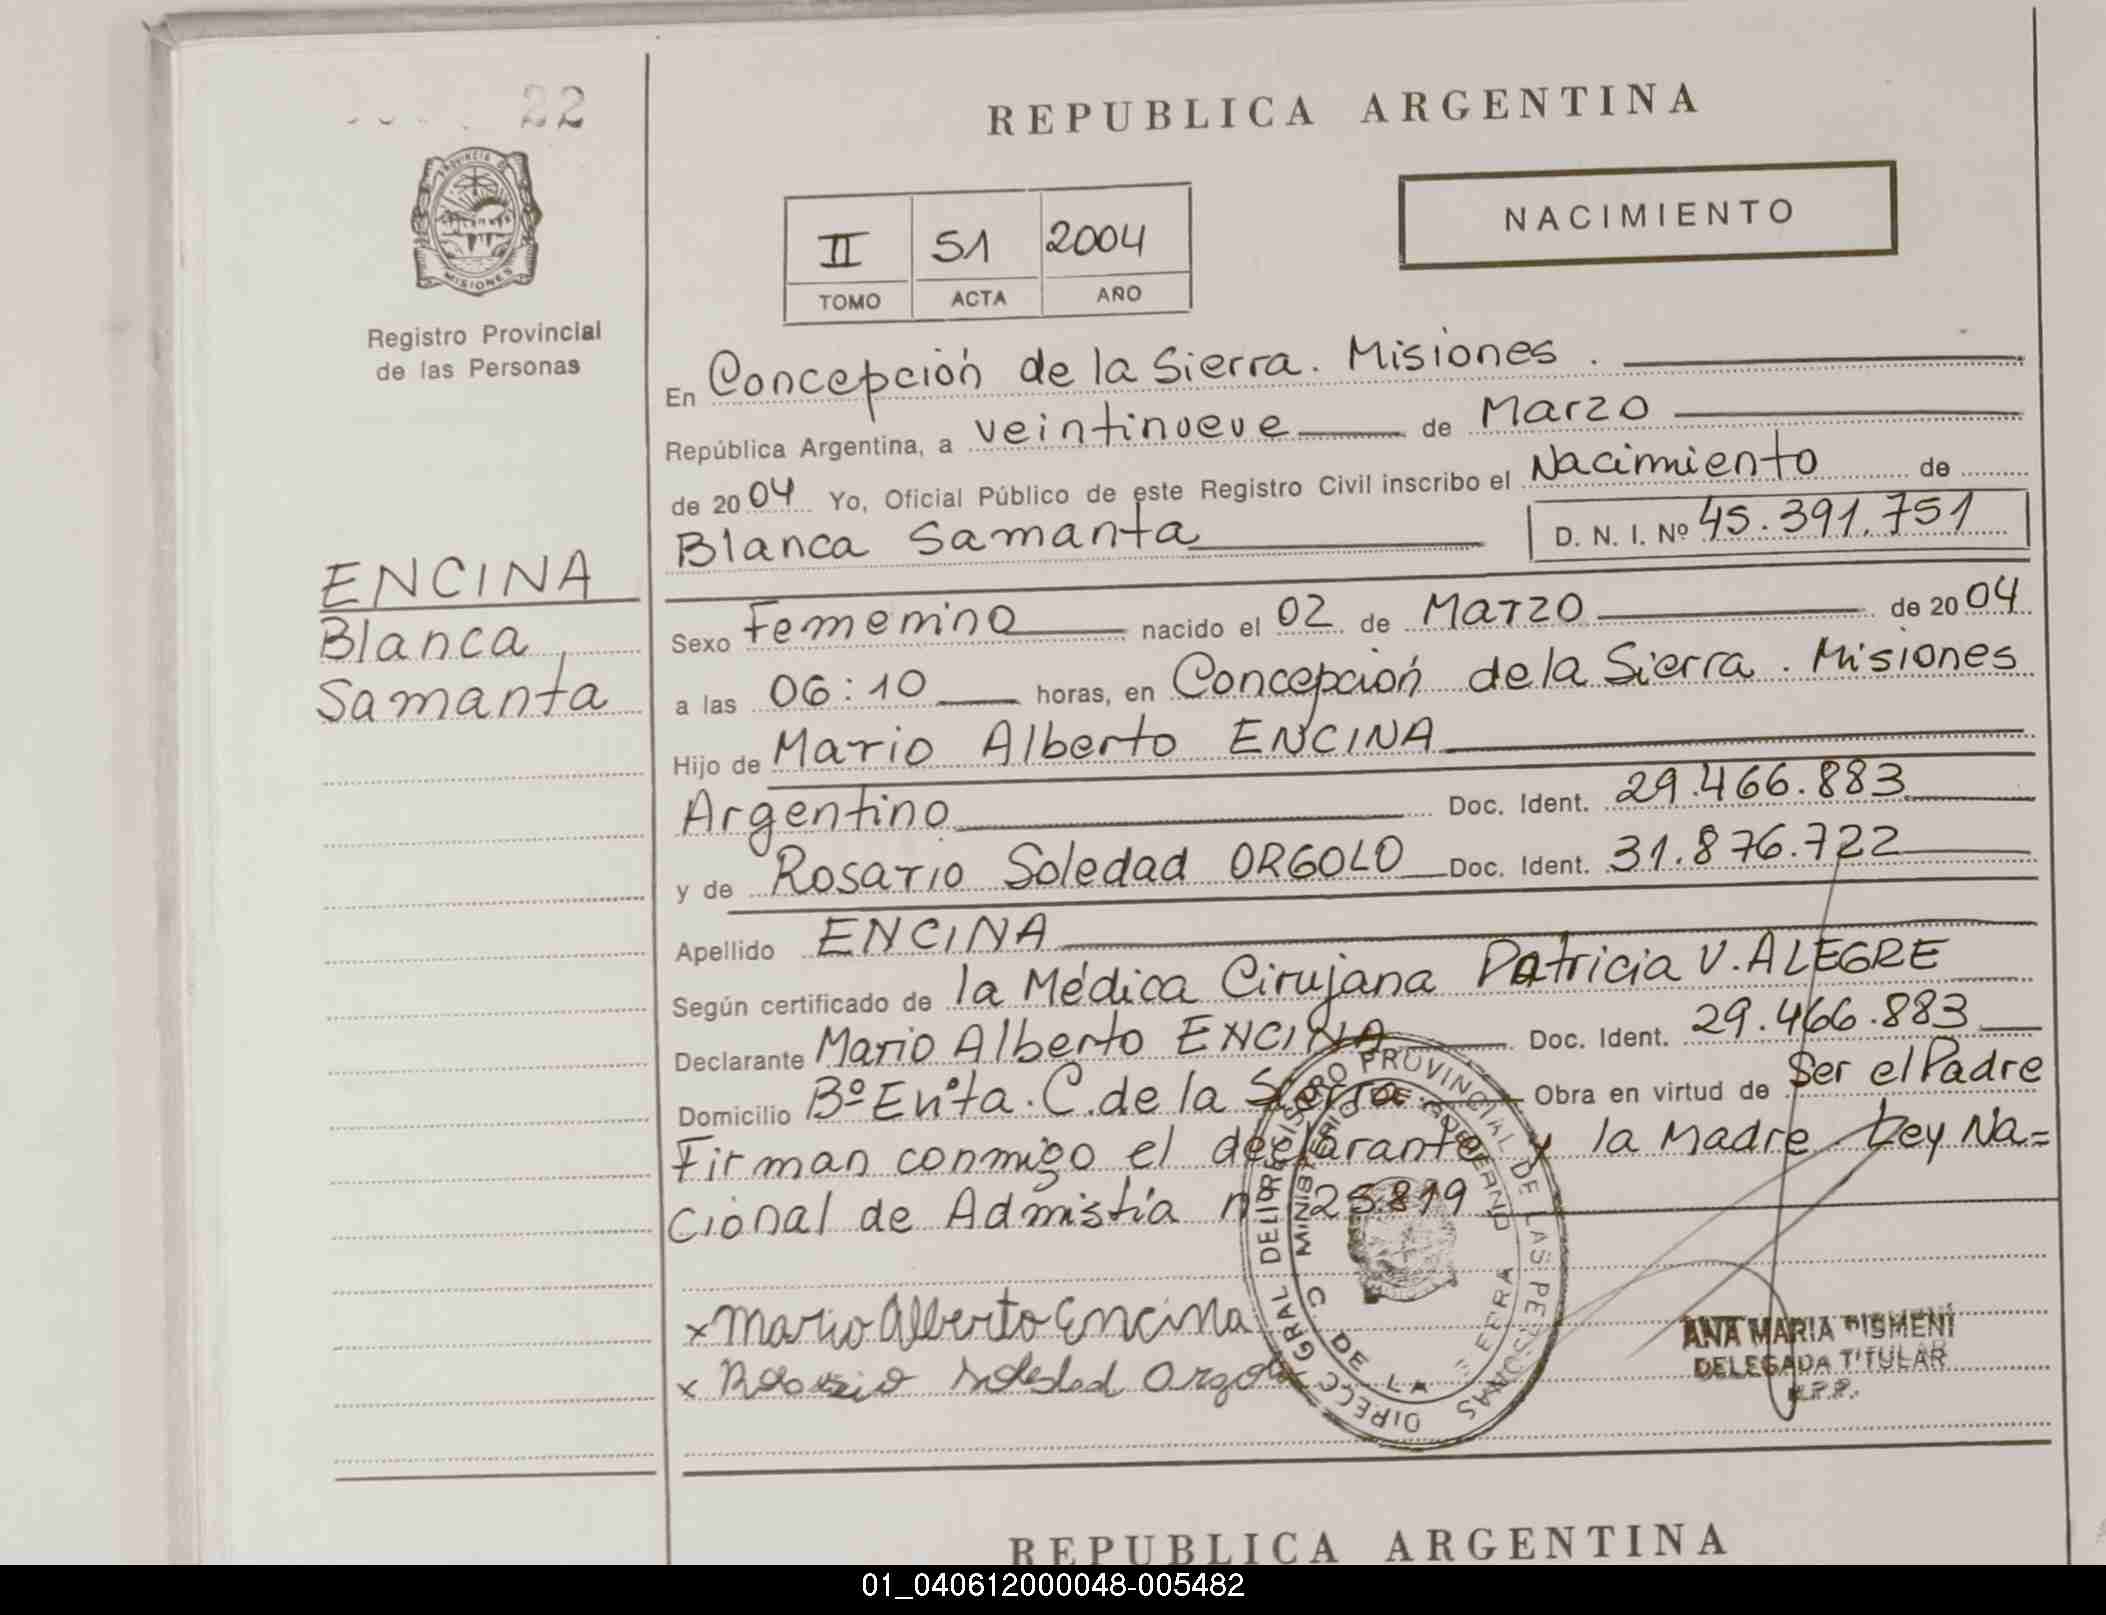 22
PROVINCIA DE
MISIONES
Registro Provincial
de las Personas
REPUBLICA ARGENTINA
II 51 2004
TOMO ACTA AÑO
NACIMIENTO
En Concepción de la Sierra. Misiones.
República Argentina, a veintinueve de Marzo
de 2004 Yo, Oficial Público de este Registro Civil inscribo el Nacimiento de
Blanca Samanta D. N. I. Nº 45.391.751
ENCINA
Blanca
Samanta
Sexo Femenino nacido el 02 de Marzo de 2004
a las 06:10 horas, en Concepción de la Sierra. Misiones
Hijo de Mario Alberto ENCINA
Argentino Doc. Ident. 29.466.883
y de Rosario Soledad ORGOLO Doc. Ident. 31.876.722
Apellido ENCINA
Según certificado de la Médica Cirujana Patricia V. ALEGRE
Declarante Mario Alberto ENCINA Doc. Ident. 29.466.883
Domicilio Bº Evita. C. de la Sierra. Obra en virtud de Ser el Padre
Firman conmigo el declarante y la Madre. Ley Na=
cional de Admistía nº 25.819
x Mario Alberto Encina
x Rosario Soledad Orgolo
DIRECC. GRAL DEL REGISTRO PROVINCIAL DE LAS PERSONAS
MINISTERIO DE GOBIERNO
C. DE LA SIERRA
ANA MARIA PISMENI
DELEGADA TITULAR
R.P.P.
REPUBLICA ARGENTINA
01_040612000048-005482